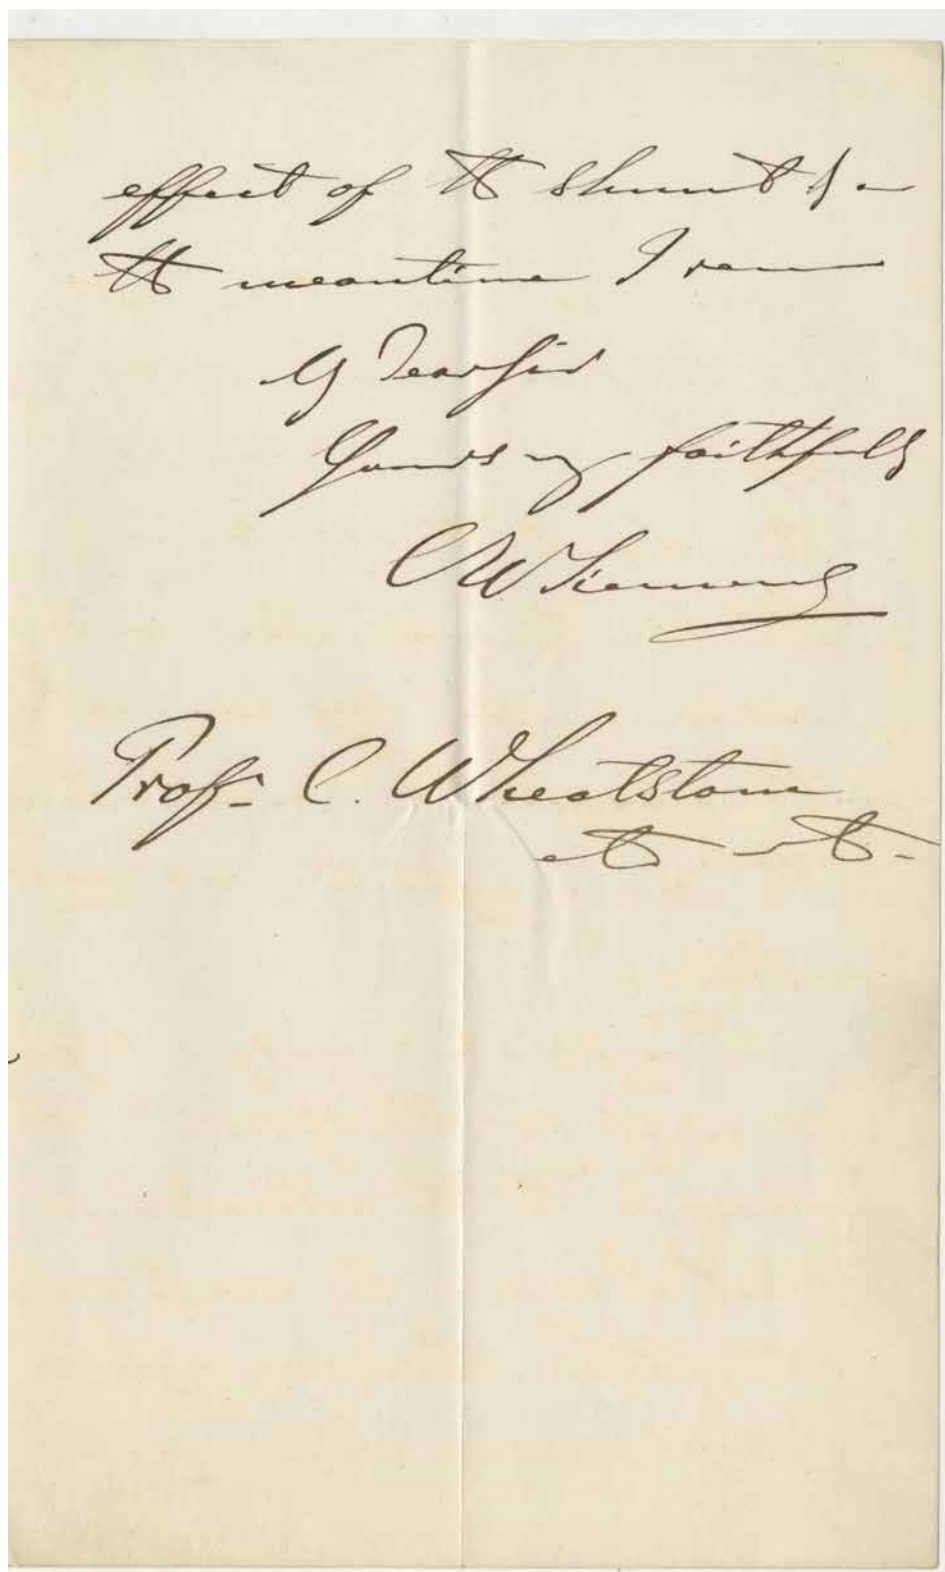 effect of the shunt & in
the meantime I rem
My Dear Sir
Yours very faithfully
C W Siemens
Profr. C. Wheatstone
etc etc.